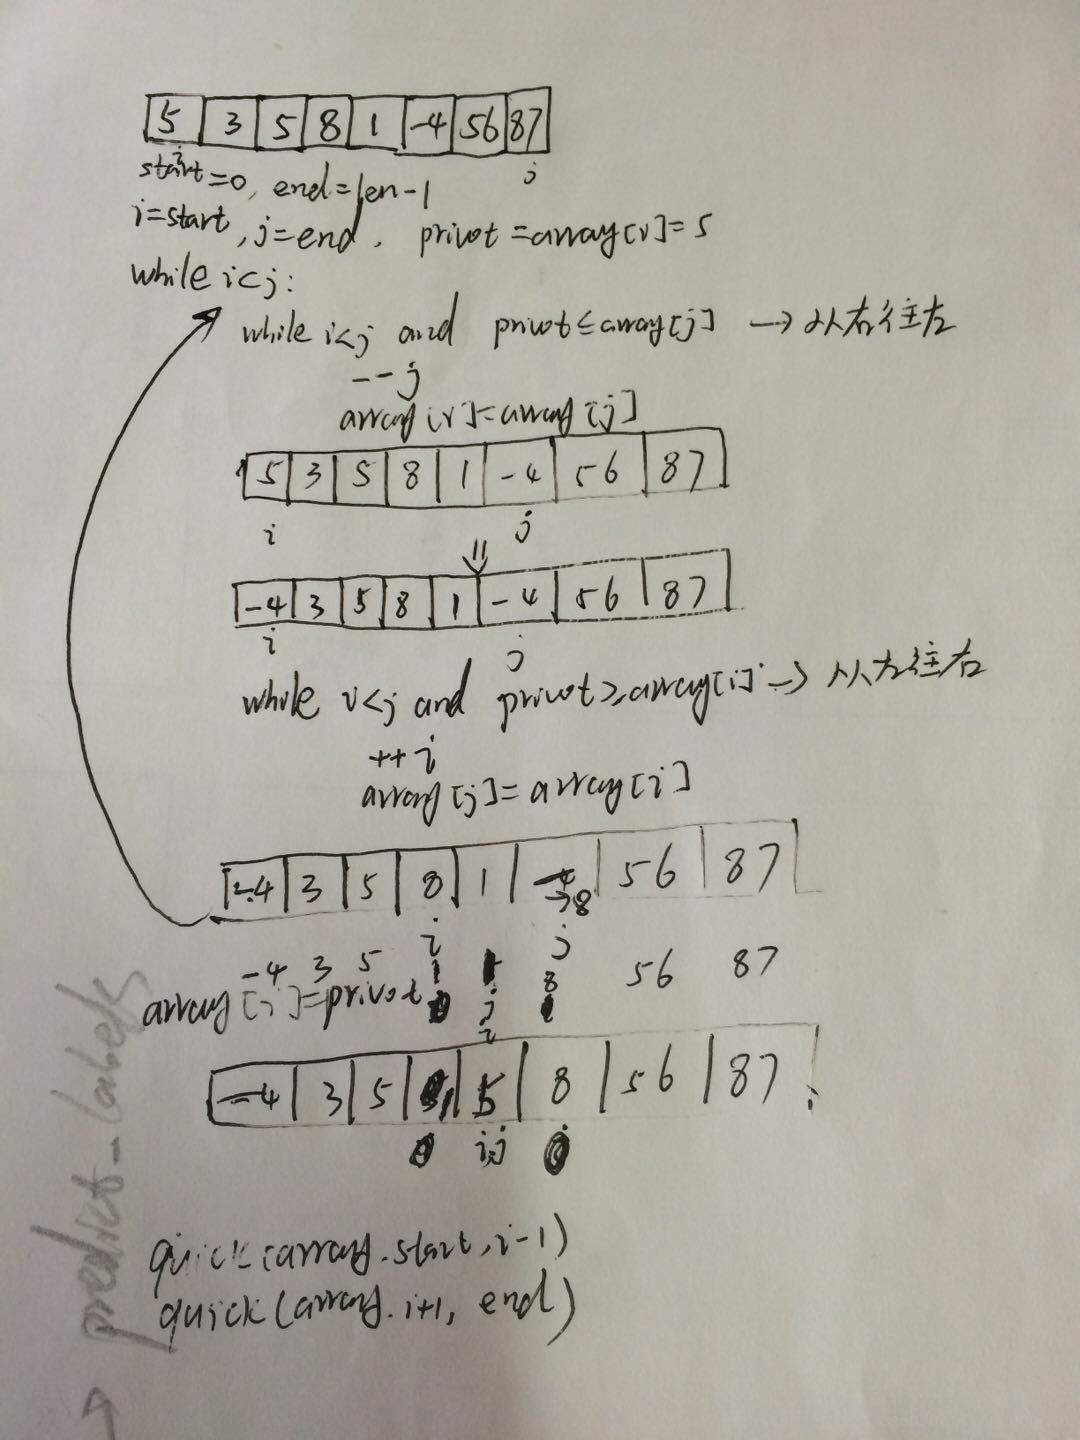 5 3 5 8 1 -4 56 87
i j
start=0, end=len-1
i=start, j=end, privot=array[i]=5
while i<j:
while i<j and privot≤array[j] → 从右往左
--j
array[i]=array[j]
5 3 5 8 1 -4 56 87
i j
-4 3 5 8 1 -4 56 87
i j
while i<j and privot≥array[i] → 从左往右
++i
array[j]=array[i]
-4 3 5 8 1 →8 56 87
i j
-4 3 5 1 8 56 87
j
i
array[i]=privot
-4 3 5 1 5 8 56 87
i,j
quick(array.start,i-1)
quick(array.i+1, end)
→ predict_labels